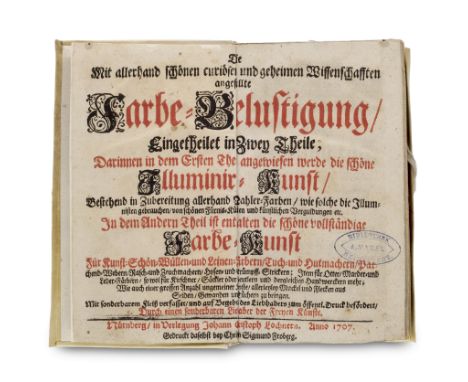 Die
Mit allerhand schönen curiösen und geheimen Wissenschafften
angefüllte
Farbe-Belustigung/
Eingetheilet in Zwey Theile,
Darinnen in dem Ersten The angewiesen werde die schöne
Illuminir-Kunst/
Bestehend in Zubereitung allerhand Mahler-Farben/ wie solche die Illumi-
nisten gebrauchen/ von schönen Fürnis-Küten und künstlichen Vergüldungen etc.
In dem Andern Theil ist entalten die schöne vollständige
Farbe-Kunst
Für Kunst-Schön-Wüllen-und Leinen-Färbern/Tuch-und Hutmachern/Par-
chend-Webern/Rasch-und Zeuchmachern/Hosen-und Strümpff-Strickern; Item für
Leder-Färbern/ so wol für Kirschner/ und dergleichen Handwercken mehr;
Wie auch einer grossen Anzahl ungemeiner allerley Mackel und Flecken aus
Seiden/ Gewanden und zu bringen.
Mit sonderbarem Fleiß verfasset/ und auff Begehr des Liebhabers zum öffentl. Druck befördert/
Durch einen sonderbaren Liebhaber der Freyen Künste.
Nürnberg/ in Verlegung Johann Christoph Lochners. Anno 1707.
Gedruckt daselbst bey Christ. Sigmund Froberg.